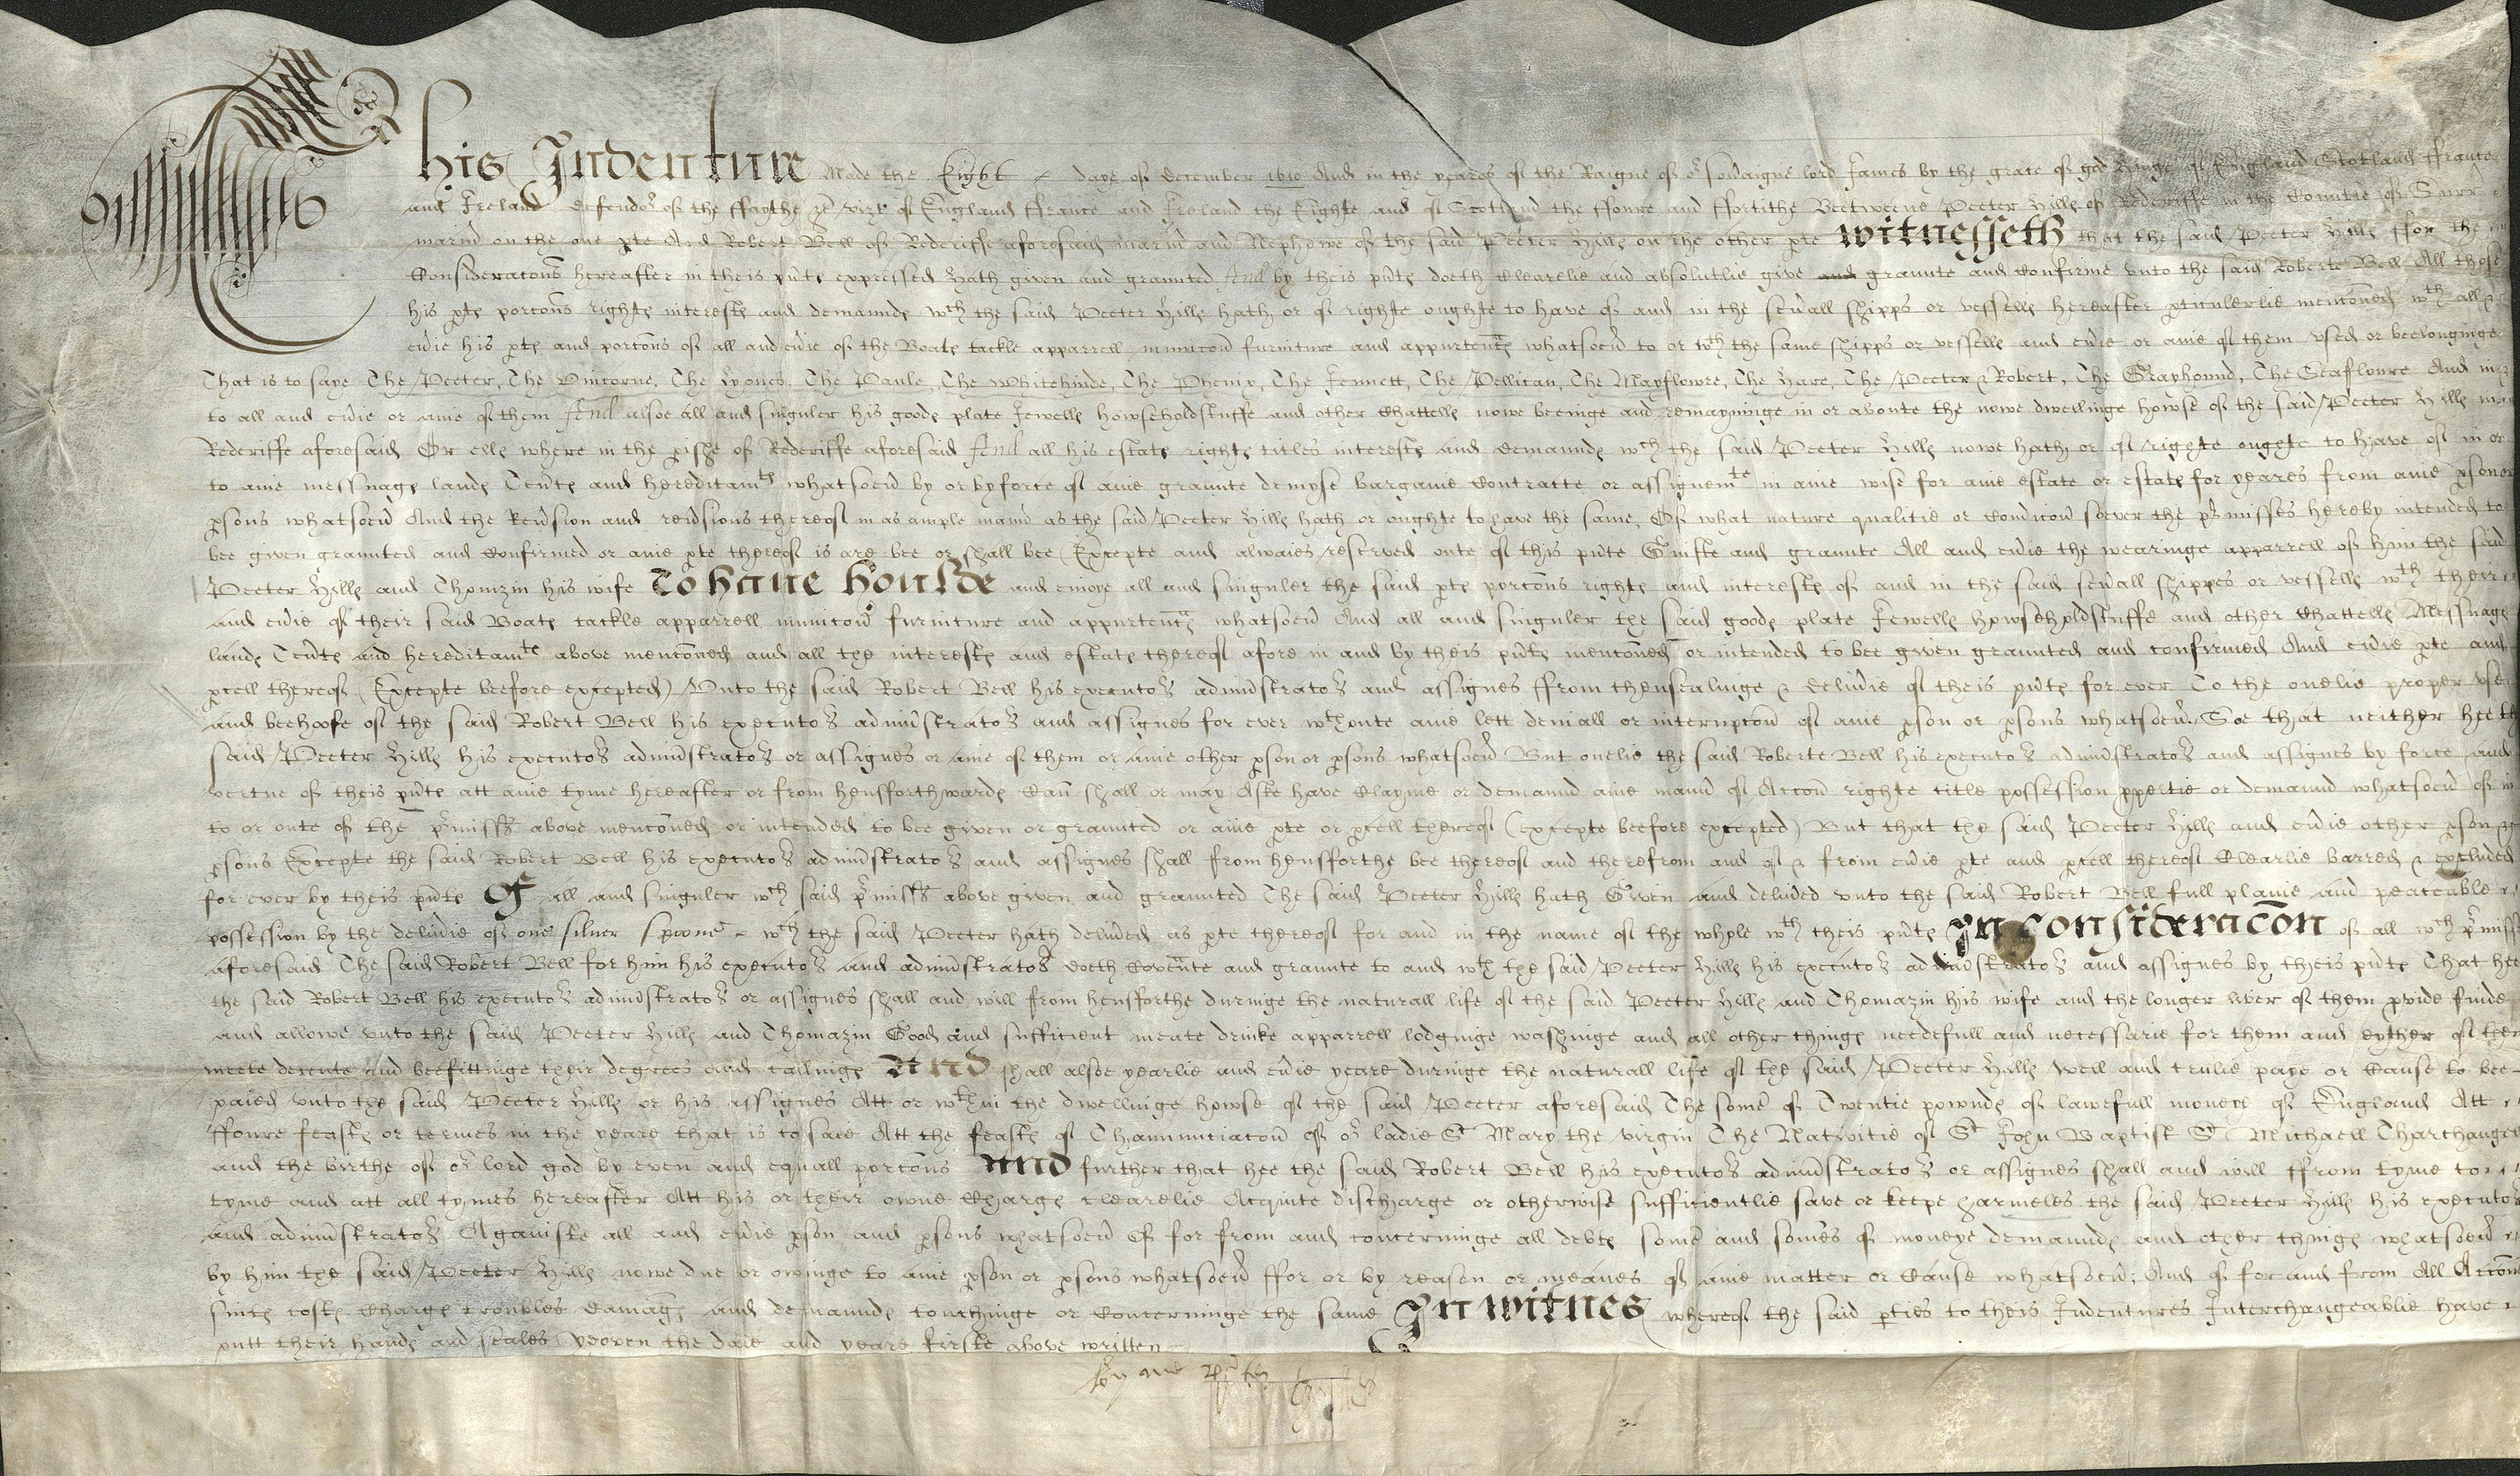 This Indenture Made the Eight daye of December 1610 And in the yeares of the Raigne of or sov'aigne lord James by the grace of god Kinge of England Scotland ffrance
and Ireland defendor of the ffaythe &c vizt of England ffrance and Ireland the Eighte and of Scotland the ffoure and ffortithe Beetweene Peeter Hills of Rederiffe in the Countie of Surr
marin' on the one p'te And Robert Bell of Rederiffe aforesaid marin' and Nephewe of the said Peeter Hills on the other p'te witnesseth that the said Peeter Hills ffor the
Considerac'ons hereafter in theis p'nts expressed Hath given and graunted And by theis p'nts doeth Clearelie and absolutlie give and graunte and Confirme vnto the said Roberte Bell All those
his p'ts porc'ons rights interests and demaunds wch the said Peeter Hills hath or of righte oughte to have of and in the sev'all shipps or vessells hereafter p'ticulerlie menc'oned wth all &
ev'ie his p'ts and porc'ons of all and ev'ie of the Boats tackle apparrell munic'on furniture and appurtenncs whatsoev' to or wth the same shipps or vessells and ev'ie or anie of them vsed or beelonginge
That is to saye The Peeter, The Vnicorne, The Lyones, The Paule, The Whitehinde, The Phenix, The Jennett, The Pellican, The Mayflowre, The Hare, The Peeter & Robert, The Grayhound, The Seaflowre And in &
to all and ev'ie or anie of them And alsoe all and singuler his goods plate Jewells howseholdstuffe and other Chattells nowe beeinge and remayninge in or aboute the nowe dwellinge howse of the said Peeter Hills in
Rederiffe aforesaid Or ells where in the p'ishe of Rederiffe aforesaid And all his estats rights titles interests and demaunds wch the said Peeter Hills nowe hath or of righte oughte to have of in or
to anie messuags lands Ten'ts and hereditamts whatsoev' by or by force of anie graunte demyse bargaine Contracte or assignemte in anie wise for anie estate or estats for yeares from anie p'son or
p'sons whatsoev' And the Rev'sion and rev'sions thereof in as ample mann' as the said Peeter Hills hath or oughte to have the same, Of what nature qualitie or Condic'on soever the p'misses hereby intended to
bee given graunted and Confirmed or anie p'te thereof is are bee or shall bee (Excepte and alwaies reserved oute of this p'nte Guifte and graunte All and ev'ie the wearinge apparrell of him the said
Peeter Hills and Thomzin his wife To have houlde and enioye all and singuler the said p'ts porc'ons rights and interests of and in the said sev'all shippes or vessells wth their
and ev'ie of their said Boats tackle apparrell munic'on furniture and appurtenncs whatsoev' And all and singuler the said goods plate Jewells howseholdstuffe and other Chattells Messuags
lands Ten'ts and hereditamts above menc'oned and all the interests and estats thereof afore in and by theis p'nts menc'oned or intended to bee given graunted and confirmed And ev'ie p'te and
p'cell thereof (Excepte beefore excepted) Vnto the said Robert Bell his executors administrators and assignes ffrom thensealinge & deliv'ie of theis p'nts for ever To the onelie proper vse
and beehoofe of the said Robert Bell his executors administrators and assignes for ever wthoute anie lett deniall or interupc'on of anie p'son or p'sons whatsoev' Soe that neither hee th
said Peeter Hills his executors administrators or assignes or anie of them or anie other p'son or p'sons whatsoev' But onelie the said Roberte Bell his executors administrators and assignes by force and
vertue of theis p'nts att anie tyme hereafter or from hensforthwards Can shall or may Aske have Clayme or demaund anie mann' of Acc'on righte title possession p'pertie or demaund whatsoev' of in
to or oute of the p'misss above menc'oned or intended to bee given or graunted or anie p'te or p'cell thereof (excepte beefore excepted) But that the said Peeter Hills and ev'ie other p'son &
p'sons Excepte the said Robert Bell his executors administrators and assignes shall from hensforthe bee thereof and therefrom and of & from ev'ie p'te and p'cell thereof Clearlie barred & excluded
for ever by theis p'nts Of all and singuler wch said p'misss above given and graunted The said Peeter Hills hath Given and deliv'ed vnto the said Robert Bell full plaine and peaceable
possession by the deliv'ie of one silver spoone wch the said Peeter hath deliv'ed as p'te thereof for and in the name of the whole wth theis p'nts In considerac'on of all wch p'misss
aforesaid The said Robert Bell for him his executors and administrators doeth Covennte and graunte to and wth the said Peeter Hills his executors administrators and assignes by theis p'nts That hee
the said Robert Bell his executors administrators or assignes shall and will from hensforthe duringe the naturall life of the said Peeter Hills and Thomazin his wife and the longer liver of them p'vide finde
and allowe vnto the said Peeter Hills and Thomazin Good and sufficient meate drinke apparrell lodginge washinge and all other things needefull and necessarie for them and eyther of them
meete decente and beefittinge their degrees and callings And shall alsoe yearlie and ev'ie yeare duringe the naturall life of the said Peeter Hills Well and trulie paye or Cause to bee
paied vnto the said Peeter Hills or his assignes Att or wthin the dwellinge howse of the said Peeter aforesaid The some of Twentie pownds of lawefull money of England Att
ffoure feasts or termes in the yeare that is to saie Att the feasts of Thannunciac'on of or ladie St Mary the virgin The Nativitie of St John Baptist St Michaell Tharchangell
and the birthe of or lord god by even and equall porc'ons And further that hee the said Robert Bell his executors administrators or assignes shall and will ffrom tyme to
tyme and att all tymes hereafter Att his or their owne Chargs clearelie Acquite discharge or otherwise sufficientlie save or keepe harmeles the said Peeter Hills his executors
and administrators Againste all and ev'ie p'son and p'sons whatsoev' Of for from and concerninge all debts some and somes of moneye demaunds and other things whatsoev'
by him the said Peeter Hills nowe due or owinge to anie p'son or p'sons whatsoev' ffor or by reason or meanes of anie matter or Cause whatsoev'; And of for and from All Acc'ons
suits costs Chargs troubles damags and demaunds touchinge or Concerninge the same In witnes whereof the said p'ties to theis Indentures Interchangeablie have
putt their hands and seales Yeoven the daie and yeare firste above written
by me